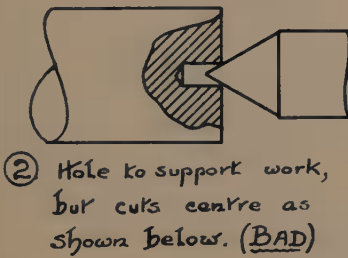 ② Hole to support work,
but cuts centre as
shown below. (BAD)